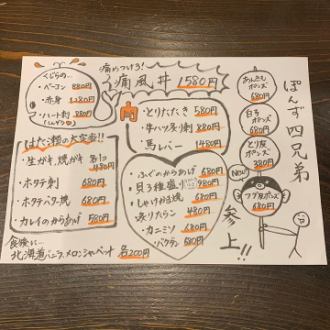 くじらの…
・ベーコン 880円
・赤身 1280円
・ハート刺 880円
痛めつけろ!
痛風丼 1580円
肉
・とりたたき 580円
・牛ハツ炙り刺 680円
・馬レバー 1480円
はた瀬の大定番!!
・生がき、焼がき 各1コ 480円
・ホタテ刺 680円
・ホタテバター焼 680円
・カレイのからあげ 580円
・ふぐのからあげ 680円
・貝3種盛 980円
・しゃけかま焼 680円
・炙りたらこ 480円
・カニミソ 680円
・バクラン 580円
ぽんず四兄弟
あんきもポンズ 680円
白子ポンズ 680円
とり皮ポンズ 380円
New
フグ皮ポンズ 680円
参上!!
食後に…
北海道バニラ、メロンシャーベット 各200円